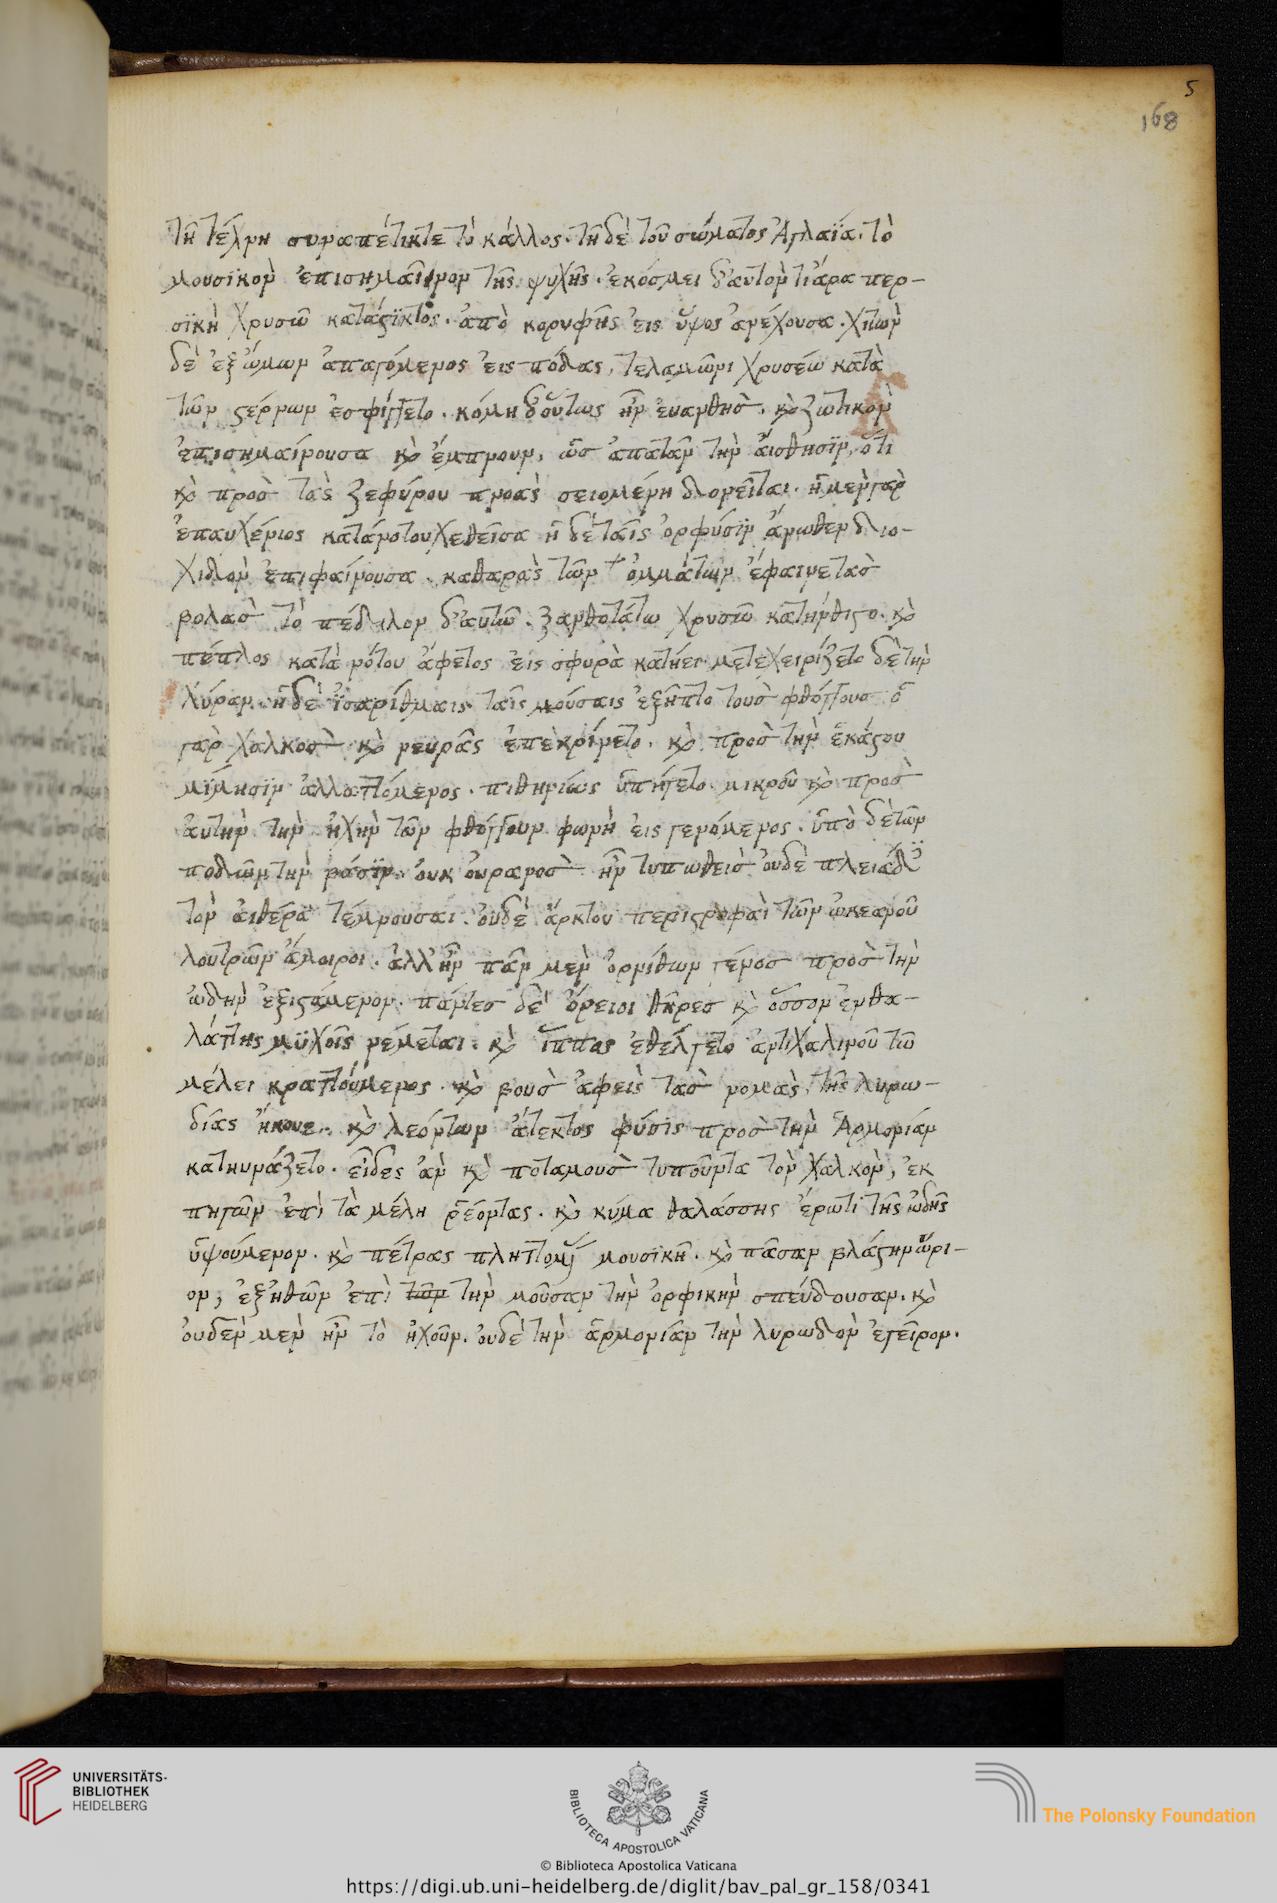 5
168
τῆ τέχνη συναπέτικτε τὸ κάλλος. τῆ δὲ τοῦ σώματος ἀγλαΐα. τὸ
μουσικὸν ἐπισημαῖνον τῆς ψυχῆς. ἐκόσμει δ'αυτὸν τιάρα περ-
σϊκὴ χρυσῶ κατάςϊκτος. ἀπὸ κορυφῆς εἰς ὕψος ἀνέχουσα. χιτὼν
δὲ ἐξ ὤμων ἀπαγόμενος εἰς πόδας, τελαμῶνι χρυσέω κατὰ
τῶν ςέρνων ἐσφίγγετο. κόμη δ'οὕτως ἦν ἐυανθὴσ. κὸ ζωτικὸν
ἐπισημαίνουσα κὸ ἔμπνουν, ὡσ ἀπατᾶν τὴν ἄισθησϊν, ὅτι
κὸ προσ τὰς ζεφύρου πνοὰς σειομένη δονεῖται. ἡ μὲν γὰρ
ἐπαυχένιος κατάνοτου χεθεῖσα ἡ δὲ ταῖς ὀφρύσϊν ἄνωθεν διο-
χιδὸν ἐπιφαίνουσα. καθαρὰς τῶν ὀμμάτων ἔφαινε τὰσ
βολασ τὸ πέδιλον δ'αυτῶ. ξανθοτάτω χρυσῶ κατήνθιςο. κὸ
πέπλος κατὰ νότου ἄφετος εἰς σφυρὰ κατήει μετεχειρίζετο δὲ τὴν
λύραν. ἡ δὲ ἰσαρίθμαις ταῖς μούσαις ἐξῆπτο τουσ φθόγγουσ ὁ
γαρ χαλκοσ κὸ νευρὰς ὑπεκρίνετο. κὸ προσ τὴν ἑκάςου
μϊμησϊν ἀλλαττόμενος. πιθηνίως ὑπήγετο μικροῦ κὸ προσ
ἀυτὴν τὴν ἠχὴν τῶν φθόγγουν φωνὴ εἰς γενόμενος. ὑπὸ δὲ τῶν
ποδῶν τὴν βάσϊν. ουκ ὀυρανοσ ἦν τυπωθεισ ὀυδὲ πλειάδ
τὸν ἀιθέρα τέμνουσαι. ὀυδὲ ἄρκτου περιςροφαὶ τῶν ὠκεανοῦ
λουτρῶν ἄμοιροι. ἀλλ'ἦν πᾶν μὲν ὀρνίθων γένοσ πρὸσ τὴν
ὠδὴν ἐξιςάμενον. πάντεσ δὲ ὄρειοι θῆρεσ κὸ ὅσσον ἐνθα-
λάττης μϋχοῖς νέμεται. κὸ ἵππος ἐθέλγετο ἀντιχαλινοῦ τῶ
μέλει κρατούμενος. κὸ βουσ ἀφεὶς τασ νομὰς τῆς λυρω-
δίας ἤκουε. κὸ λεόντων ἄτεκτος φύσις προσ τὴν Ἁρμονίαν
κατηυνάζετο. εἶδες ἀν κὸ ποταμουσ τυποῦντα τὸν χαλκὸν, ἐκ
πηγῶν ἐπὶ τὰ μέλη ῥέοντας. κὸ κύμα θαλάσσης ἔρωτι τῆς ὠδῆς
ὑψούμενον. κὸ πέτρας πληττομ μουσϊκῆ. κὸ πᾶσαν βλάςην ὥρι-
ον, ἐξ ἠθῶν ἐπὶ τῶν τὴν μοῦσαν τὴν ὀρφικὴν σπεύδουσαν. κὸ
ὀυδὲν μὲν ἦν τὸ ἠχοῦν. ὀυδὲ τὴν ἁρμονίαν τὴν λυρωδὸν ἐγεῖρον.
UNIVERSITÄTS-
BIBLIOTHEK
HEIDELBERG
BIBLIOTECA APOSTOLICA VATICANA
The Polonsky Foundation
© Biblioteca Apostolica Vaticana
https://digi.ub.uni-heidelberg.de/diglit/bav_pal_gr_158/0341